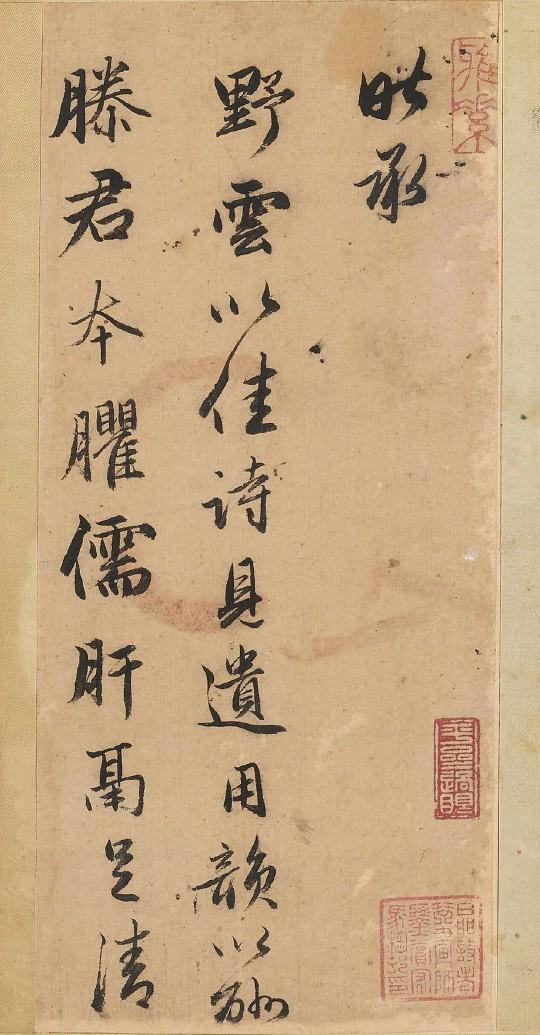 昨承
野雲以佳詩見遺用韻以酬
滕君本臞儒肝鬲足清